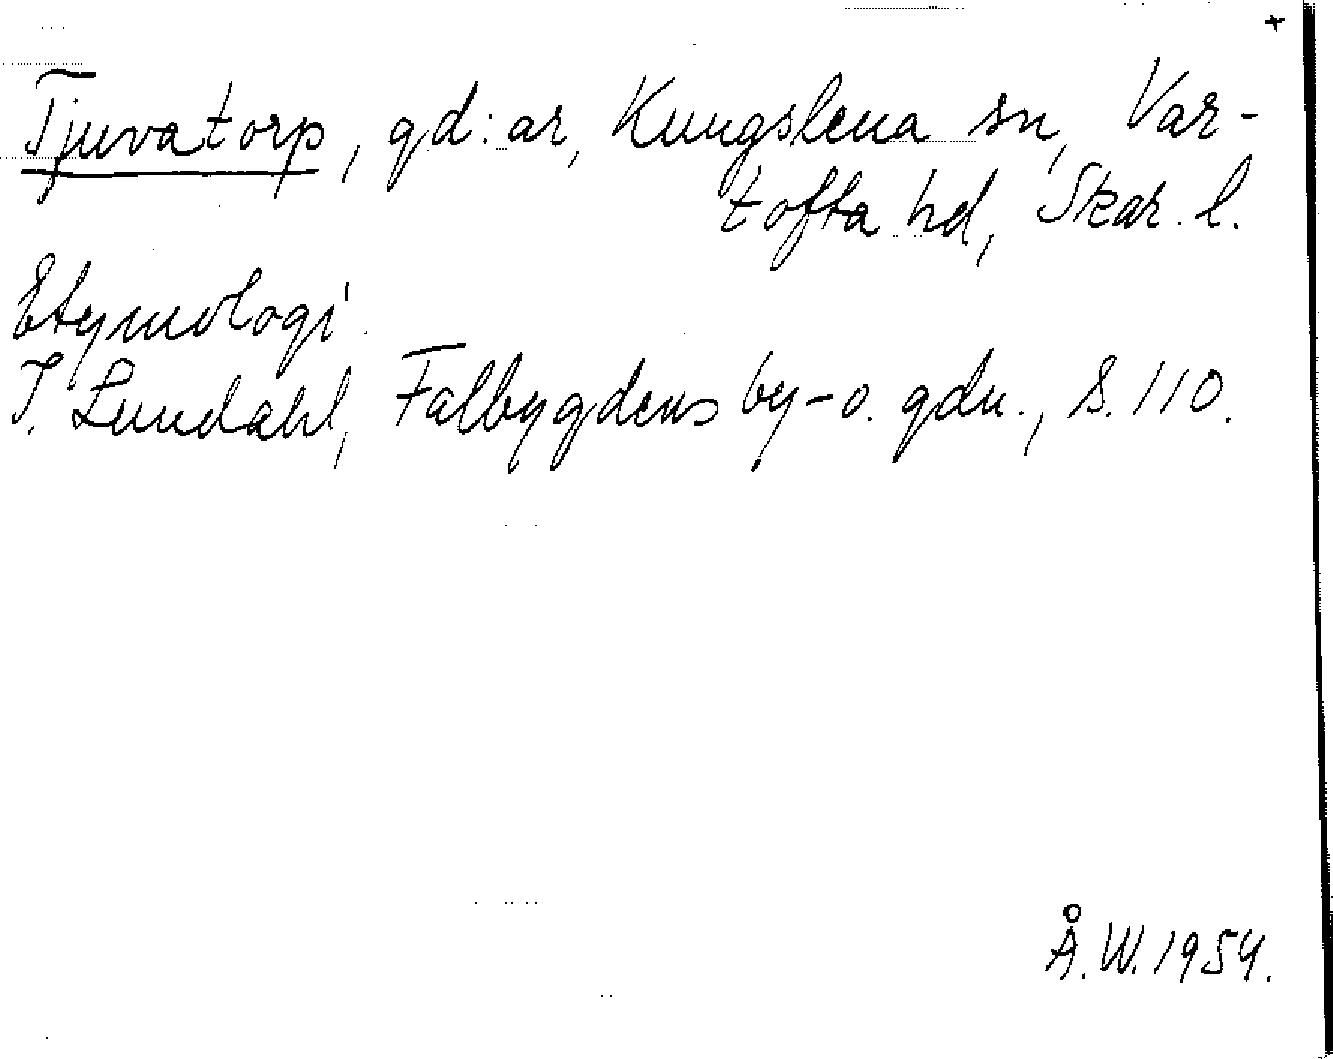 +
Tjuvatorp, gd:ar, Kungslena sn, Var-
tofta hd, Skar. l.
Etymologi.
I. Lundahl, Falbygdens by- o. gdn., S. 110.
Å. W. 1954.